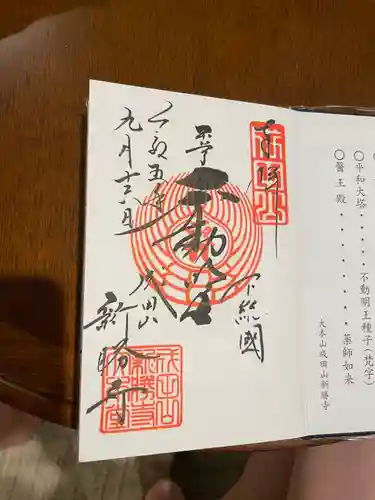 〇平和大塔・・・・・不動明王種子(梵字)
〇醫王殿・・・・・・・薬師如来
大本山成田山新勝寺
奉拝
下総國
本尊
不動
令和五年
九月十六日
成田山
新勝寺